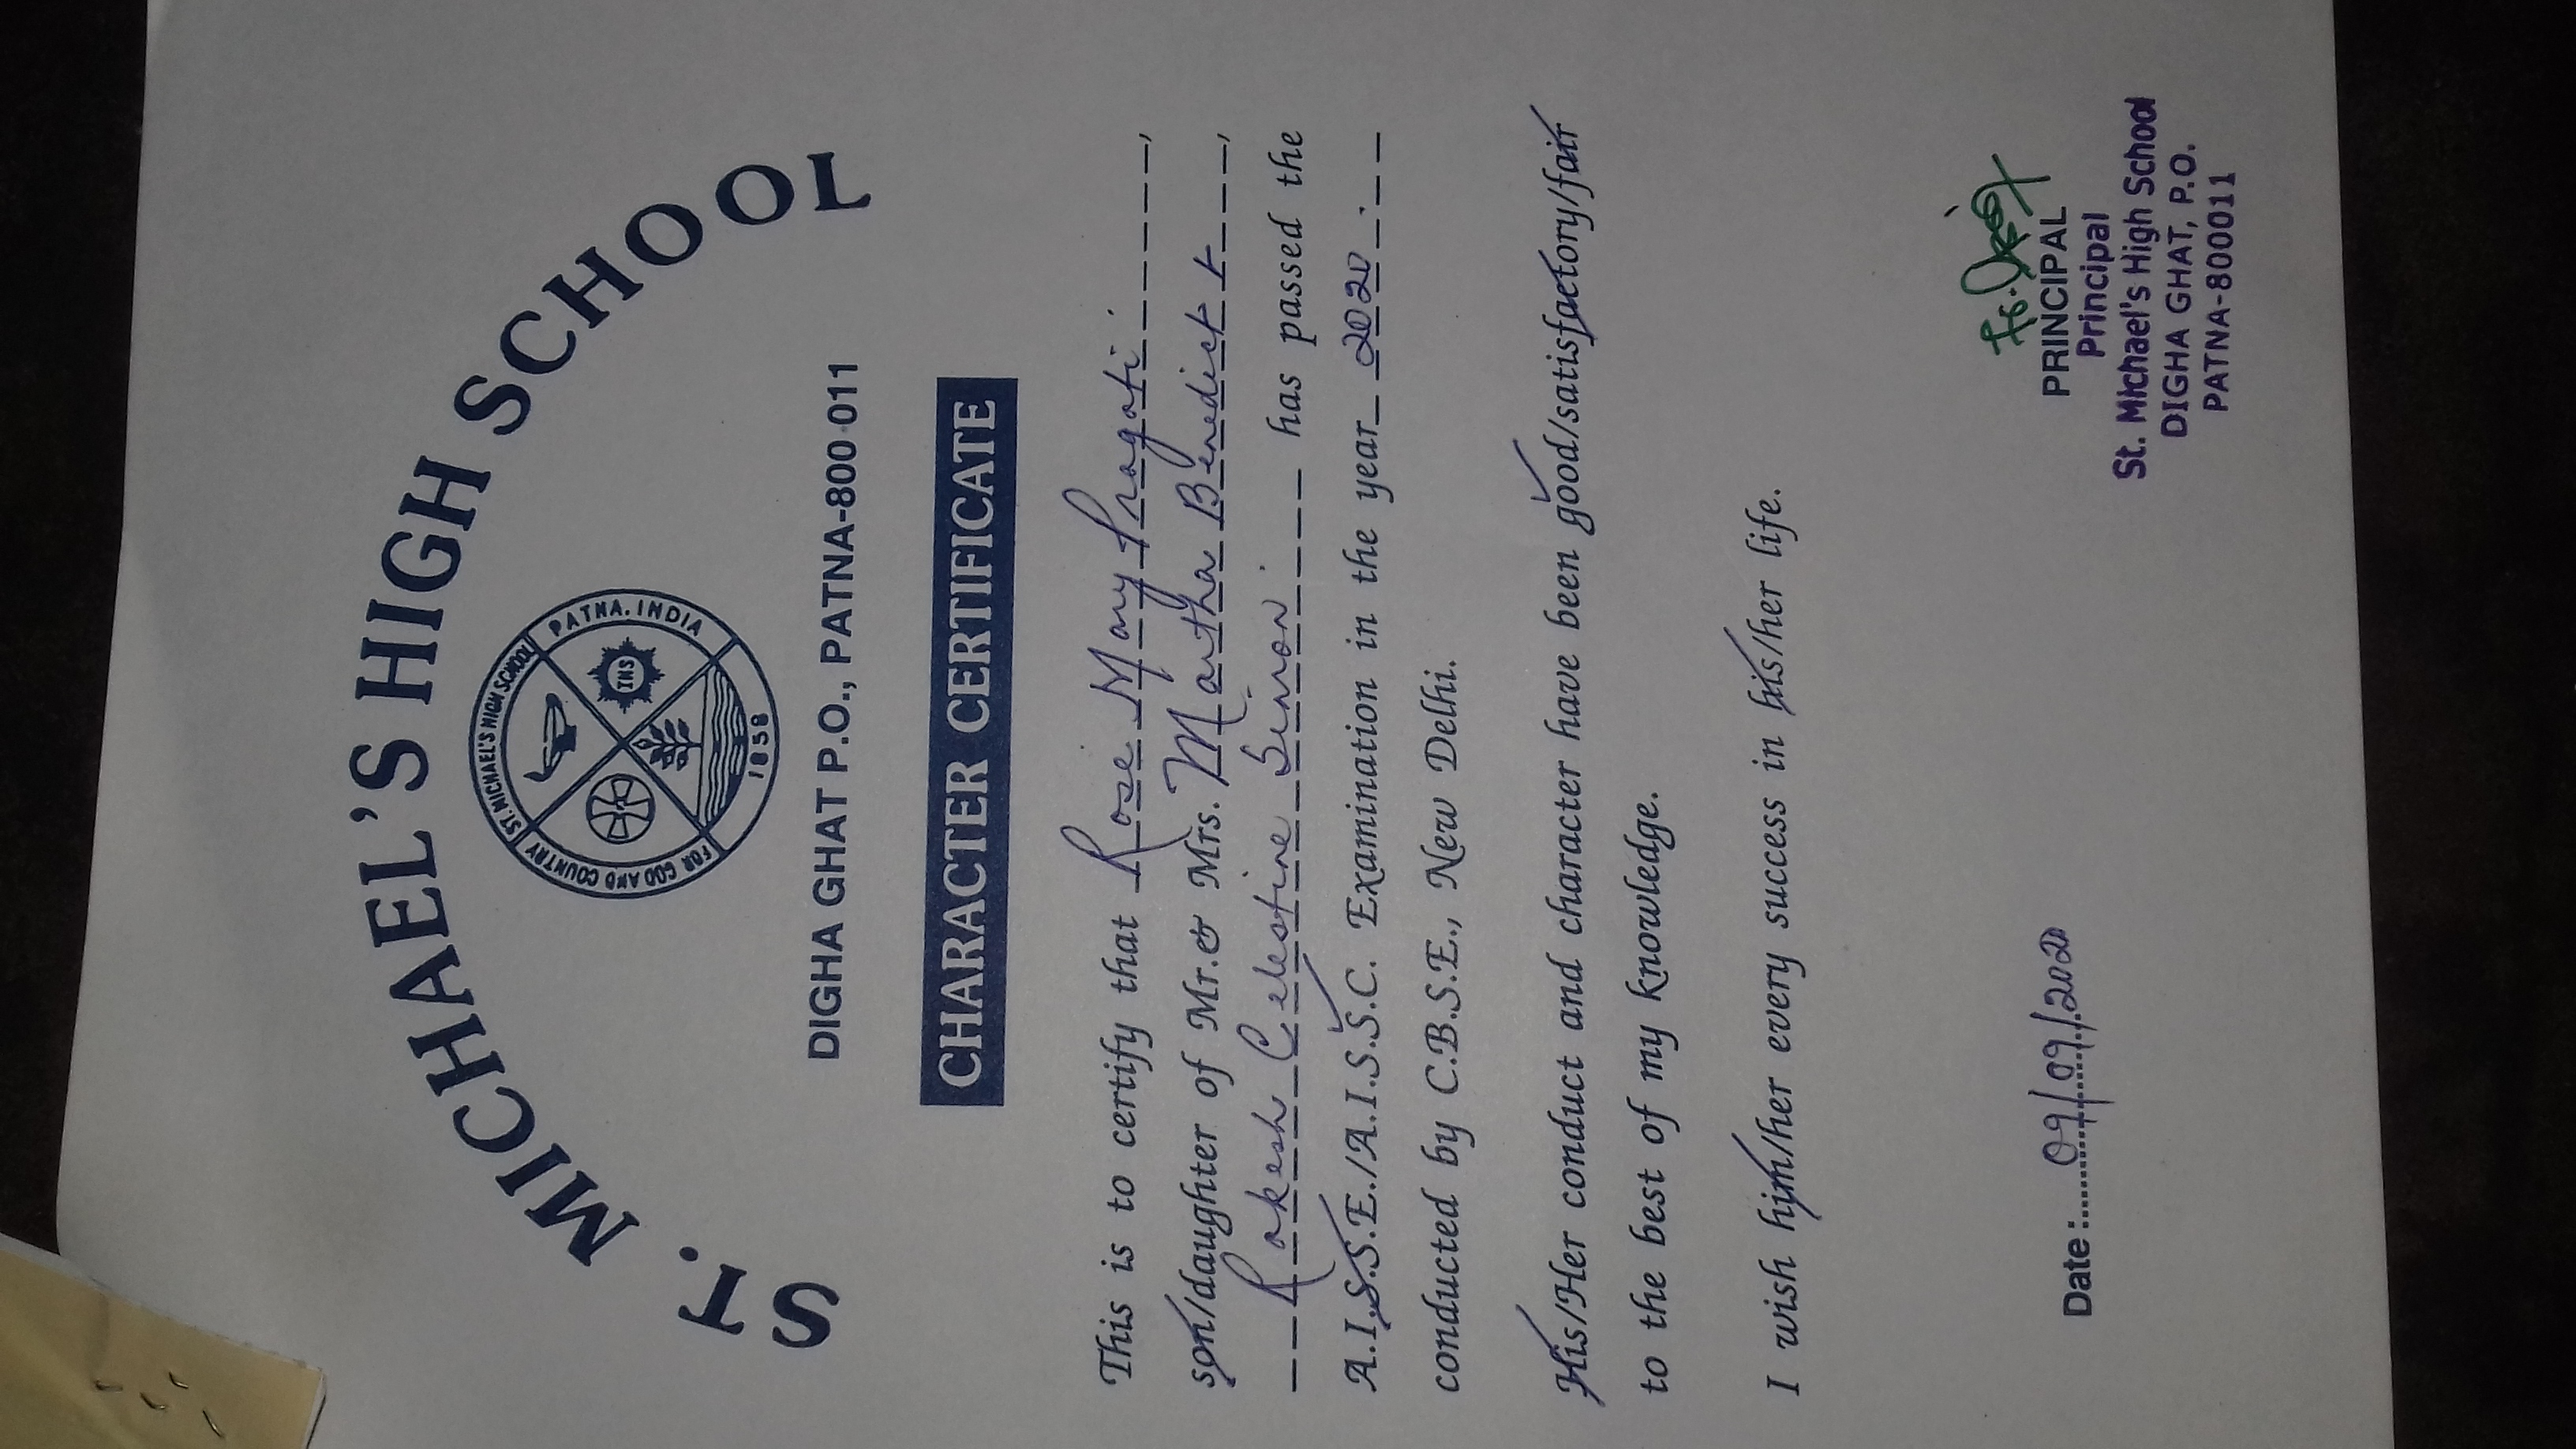 ST. MICHAEL'S HIGH SCHOOL
ST. MICHAEL'S HIGH SCHOOL
FOR GOD AND COUNTRY
PATNA. INDIA
IHS
1858
DIGHA GHAT P.O., PATNA-800 011
CHARACTER CERTIFICATE
This is to certify that Rose Mary Pragati,
son/daughter of Mr.& Mrs. Martha Benedict &,
Rakesh Celestine Simon has passed the
A.I.S.S.E./A.I.S.S.C. Examination in the year 2020
conducted by C.B.S.E., New Delhi.
His/Her conduct and character have been good/satisfactory/fair
to the best of my knowledge.
I wish him/her every success in his/her life.
Date :.....09/09/2020
Fr.
PRINCIPAL
Principal
St. Michael's High School
DIGHA GHAT, P.O.
PATNA-800011